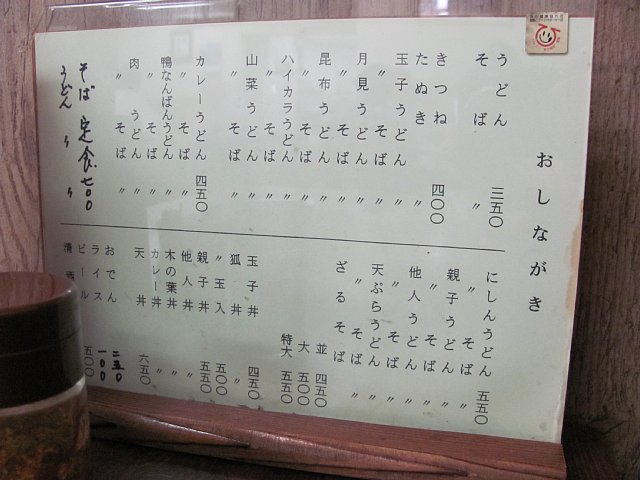 おしながき
うどん 三五〇
そば 〃
きつね 四〇〇
たぬき 〃
玉子うどん 〃
〃 そば 〃
月見うどん 〃
〃 そば 〃
昆布うどん 〃
〃 そば 〃
ハイカラうどん 〃
〃 そば 〃
山菜うどん 〃
〃 そば 〃
カレーうどん 四五〇
〃 そば 〃
鴨なんばんうどん 〃
〃 そば 〃
肉うどん 〃
〃 そば 〃
そば定食 七〇〇
うどん 〃 〃
にしんうどん 五五〇
〃 そば 〃
親子うどん 〃
〃 そば 〃
他人うどん 〃
〃 そば 〃
天ぷらうどん 〃
〃 そば 〃
ざるそば 並 四五〇
大 五〇〇
特大 五五〇
玉子丼 四五〇
狐丼 〃
〃玉入 五〇〇
親子丼 五五〇
他人丼 〃
木の葉丼 〃
カレー丼 〃
天丼 六五〇
おでん 二五〇
ライス 一〇〇
ビール 五〇〇
清酒